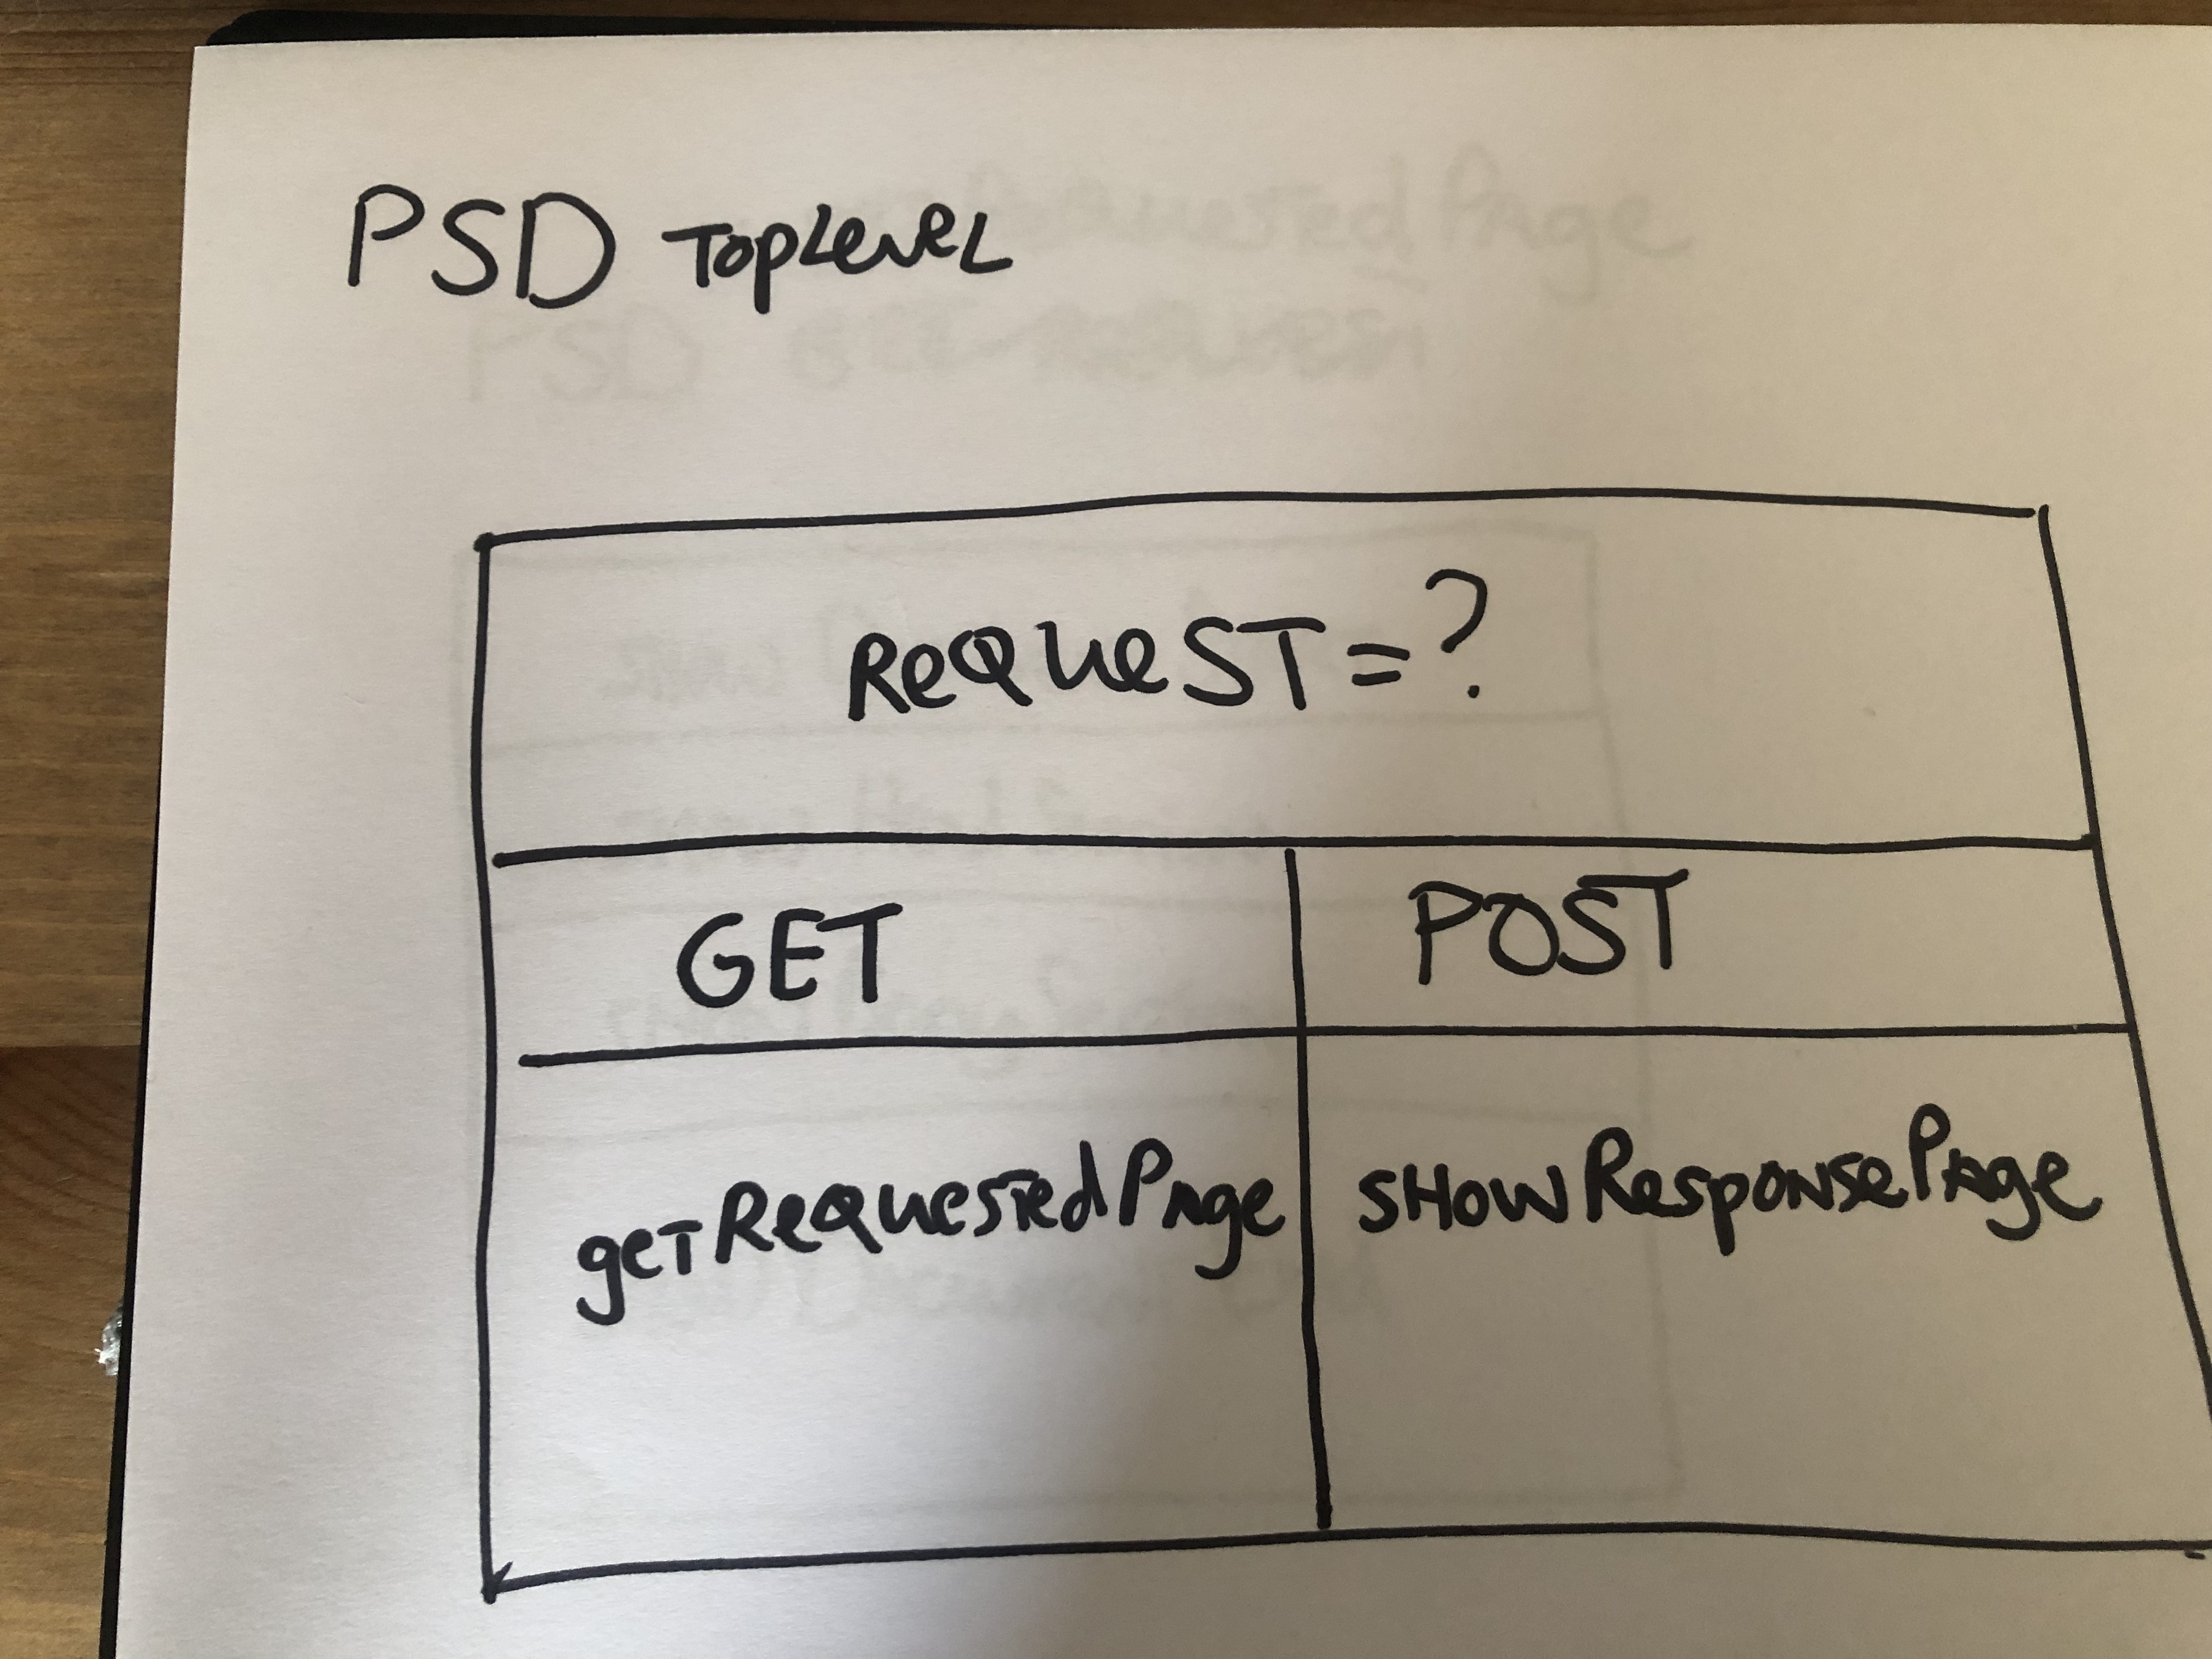 PSD TopLeveL
ReQueST = ?
GET POST
geTRequesTedPage SHowResponsePage